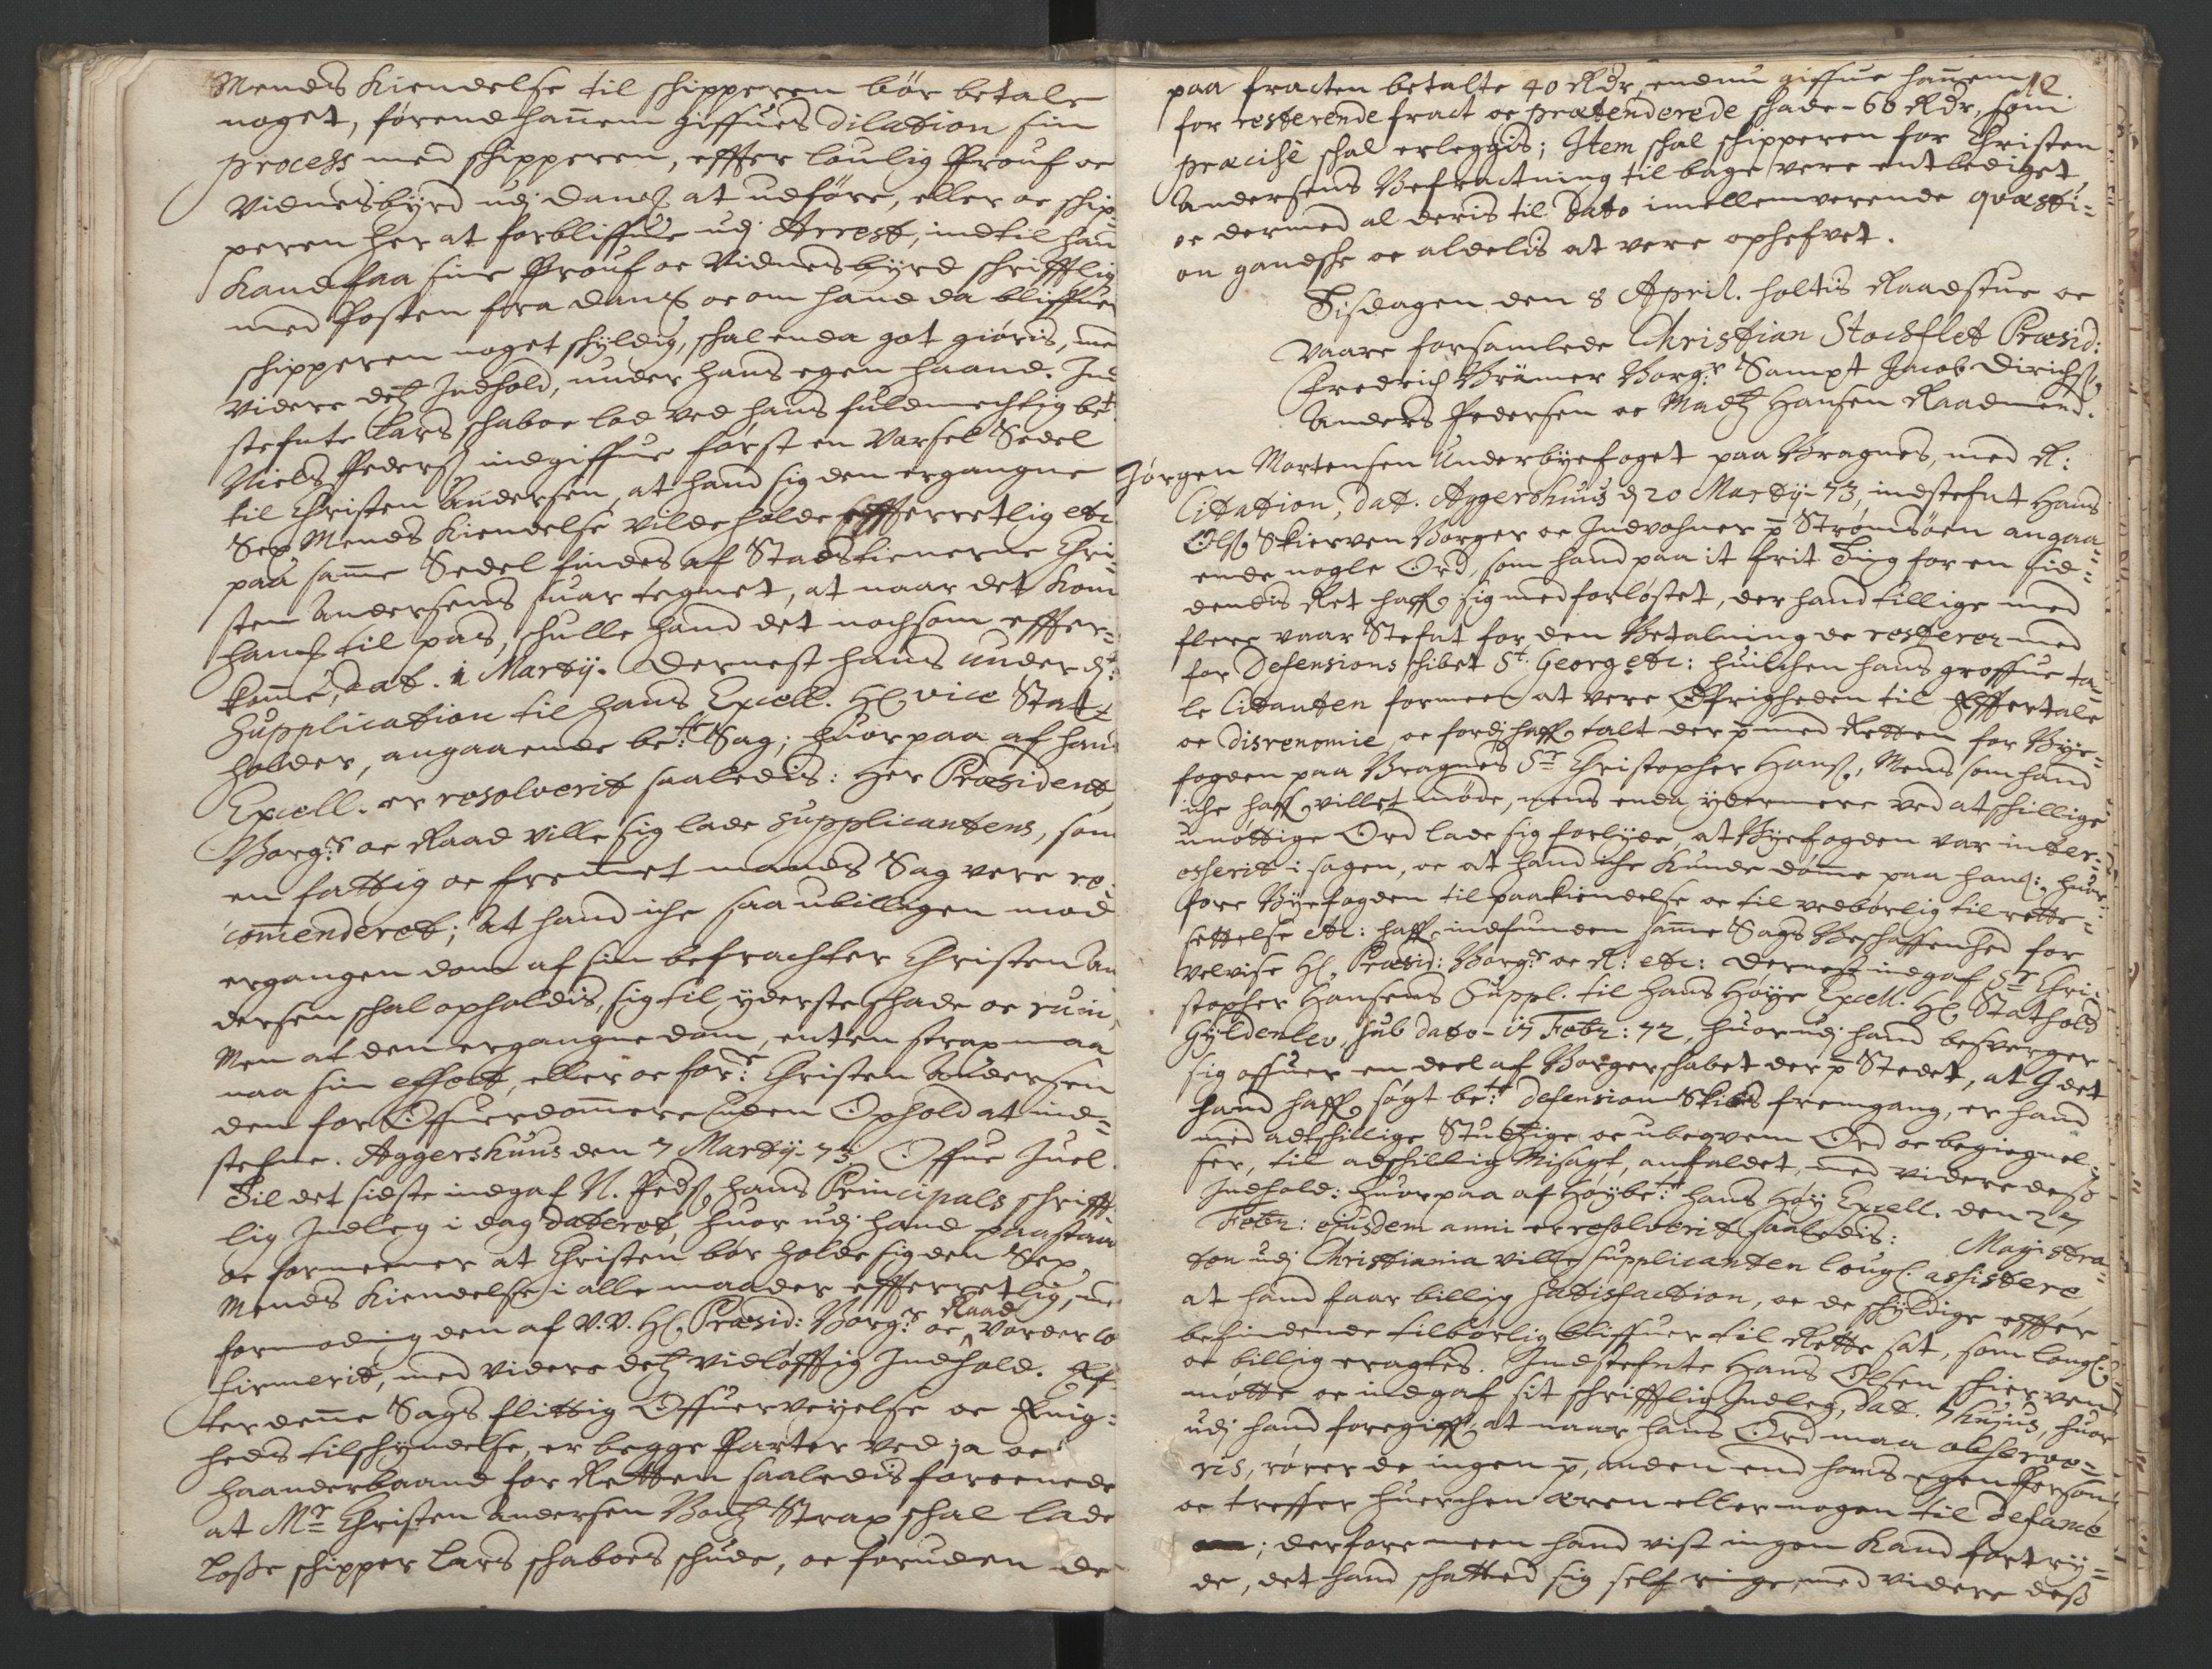 Mends Kiendelse til schipperen bör betale
noget, førend hannem giffues dilation sin
process med schipperen, effter loulig Prouf oc
Vidnesbyrd udj dansk at udføre, eller oc schip-
peren her at forbliffue udj Arrest, indtil hand
Kand faa sine Prouf oc Vidnesbyrd schrifftlig
med Posten fra dansk oc om hand da bliffuer
schipperen noget schyldig, schal enda got giøris, med
Videre detz Indhold, under hans egen haand. Ind
stefnte Lars schaboe lod ved hans fuldmechtig bet
Niels Pederß indgiffue først en Varsel Sedel
til Christen Andersen, at hand sig den ergangne
Sex Mends Kiendelse vilde holde effterretlig etc
paa samme Sedel findes af Stadstienerne Chri-
sten Andersens suar tegnet, at naar det kom
hans til pas, schulle hand det nochsom effter-
komme, dat. 1 Martij. Dernest hans underd:
Supplication til hans Excell. H: vice Stat-
holder, angaaende bete: Sag; huorpaa af hans
Excell. er resolverit saaledis: Her Præsident,
Borgr: oc Raad ville sig lade supplicantens, som
en fattig oc fremmet mands Sag vere re-
commenderet; At hand iche saa ubilligen mod
ergangen dom af sin befrachter Christen An
dersen schal opholdis, sig til yderste schade oc ruin,
Men at den ergangne dom, enten strax maa
naa sin effect, eller oc forr: Christen Andersen
dem for Offuerdommere uden Ophold at ind-
stefne. Aggershuus den 7 Martij 73 Offue Juel.
Til det sidste indgaf N. Pedß hans Principals schrifft
lig Indleg i dag dateret, huor udj hand paastaar
oc formeener at Christen bör holde sig den Sex
Mends Kiendelse i alle maader effterretlig, med
formoding den af V. V. H: Præsid: Borgr: oc Raad vorder co
firmerit, med videre detz vidløfftig Indhold. Ef-
ter denne Sags flittig Offuerveyelse oc Enig-
heds tilschyndelse, er begge Parter ved ja oc
haanderbaand for Retten saaledis foreenede
at Mr Christen Andersen Bontz Strax schal lade
losse schipper Lars schaboes schude, oc foruden de
12
paa fracten betalte 40 Rdr, endnu giffue hannem
for resterende fract oc prætenderede schade - 66 Rdr, som
præcisè schal erleggis; Item schal schipperen for Christen
Andersens Befractning til bage vere entlediget,
oc dermed al deris til Dato imellemverende qvæsti-
on gandsche oc aldelis at vere ophefvet.
Tisdagen den 8 April. holtis Raadstue oc
Vaare forsamlede Christian Stochflet Præsid:
Fredrich Brämer Borgr: Sampt Jacob Dirichß,
Anders Pedersen oc Madtz Hansen Raadmend.
Jörgen Mortensen Underbyefoget paa Bragnes, med R:
Citation, dat. Aggershuus d 20 Martij 73, indstefnt Hans
Olß Skierven Borger oc Indvohner p Strømsöen angaa-
ende nogle Ord, som hand paa it frit Ting for en sid-
dendis Ret haffr sig med forlöstet, der hand tillige med
flere vaar Stefnt for den Betalning de resterer med
for Defensions schibet St. Georg etc: huilchen hans groffue ta-
le Citanten formeen at vere Öfrigheden til Effertale
oc disrenomie, oc fordj haffr talt der p med Retten for Bye-
fogden paa Bragnes Sr Christopher Hansß, Mens som hand
iche haffr villet møde, mens enda ydermere ved atschillige
unöttige Ord lade sig forlyde, at Byefogden var inter-
esserit i sagen, oc at hand iche kunde dömme paa hans: huor-
fore Byefogden til paakiendelse oc til vedbörlig tilrette-
settelse etc: haffr indfunden samme Sags Beschaffenhed for
velvise H: Præsid: Borgr: oc R: etc: Dernest indgaf Sr Chri-
stopher Hansens Suppl. til hans Høye Excell. H: Stathold
Gyldenlev, sub dato - 17 Febr: 72, huorudj hand besverger
sig offuer en deel af Borgerschabet der p Stedet, at I det
hand haffr søgt bete: Defension Skibs fremgang, er hand
med adtschillige Studtzige oc ubeqvem Ord oc begiegnel-
ser, til adschillig Misagt, anfaldet, med videre deß
Indhold: huorpaa af Høybete: hans Høy Excell. den 27
Febr: ejusdem anni er resolverit saaledis: Magistra-
ten udj Christiania ville supplicanten lougl. assistere,
at hand faar billig satisfaction, oc de schyldige effter
befindende tilbörlig bliffuer til Rette sat, som lougl:
oc billig eragtes. Indstefnte Hans Olsen schierven
mötte oc indgaf sit schrifftlig Indleg, dat. 7 hujus, huor
udj hand foregiffr, at naar hans Ord maa observe-
ris, rører de ingen p, anden end hans egen Person,
oc treffer huerchen æren eller nogen til defame
; derfore meen hand vist ingen kand fortry-
de, det hand schatted sig self ringe, med videre deß